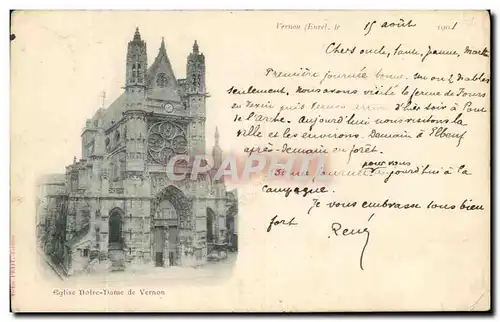 Vernon (Eure), le 15 août 1901
Chers oncle, tante, Jeanne,
Première journée bonne.
seulement. Nous avons visité la ferme de Tours
en Vexin puis Vernon arrivé d'hier soir à Pont
de l'arche. Aujourd'hui nous visitons la
ville et les environs. Demain à Elbeuf
après-demain en forêt.
Bonne journée pour vous aujourd'hui à la
Campagne.
Je vous embrasse tous bien
fort
René
CRAPHI
Eglise Notre-Dame de Vernon